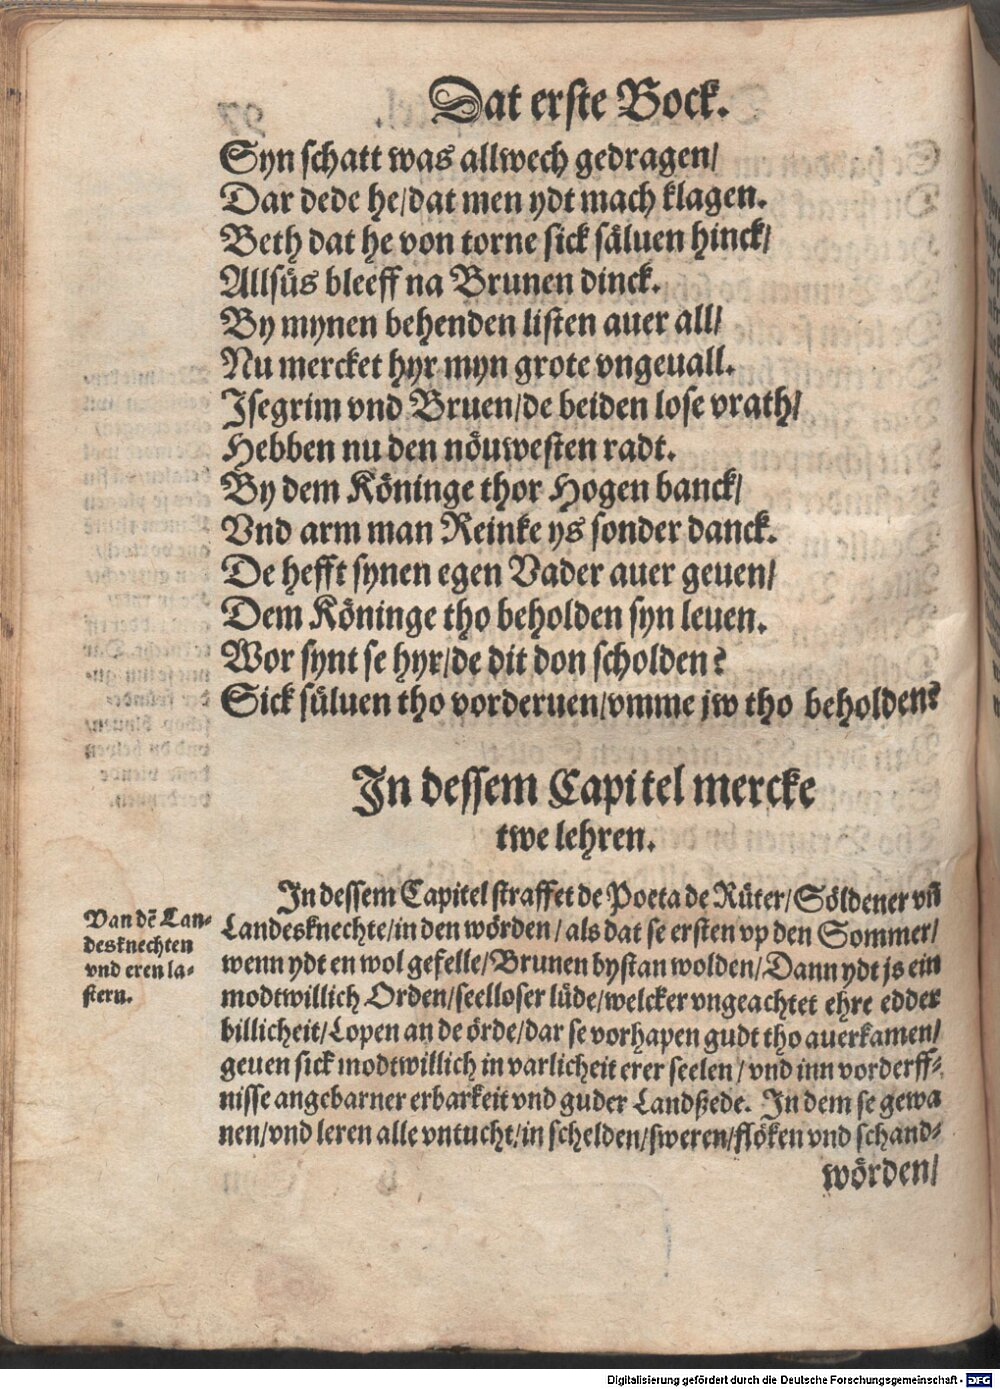 Dat erste Bock.
Syn schatt was allwech gedragen/
Dar dede he/dat men ydt mach klagen.
Beth dat he von torne sick säluen hinck/
Allsüs bleeff na Brunen dinck.
By mynen behenden listen auer all/
Nu mercket hyr myn grote vngeuall.
Isegrim vnd Bruen/de beiden lose vrath/
Hebben nu den nöuwesten radt.
By dem Köninge thor Hogen banck/
Vnd arm man Reinke ys sonder danck.
De hefft synen egen Vader auer geuen/
Dem Köninge tho beholden syn leuen.
Wor synt se hyr/de dit don scholden?
Sick süluen tho vorderuen/vmme jw tho beholden?
In dessem Capitel mercke
twe lehren.
In dessem Capitel straffet de Poeta de Rüter/Söldener vñ
Landesknechte/in den wörden/als dat se ersten vp den Sommer/
wenn ydt en wol gefelle/Brunen bystan wolden/Dann ydt js ein
modtwillich Orden/seelloser lüde/welcker vngeachtet ehre edder
billicheit/Lopen an de örde/dar se vorhapen gudt tho auerkamen/
geuen sick modtwillich in varlicheit erer seelen/vnd inn vorderff-
nisse angebarner erbarkeit vnd guder Landßede. In dem se gewa
nen/vnd leren alle vntucht/in schelden/sweren/flöken vnd schand-
wörden/
Van dẽ Lan-
desknechten
vnd eren la-
stern.
Digitalisierung gefördert durch die Deutsche Forschungsgemeinschaft - DFG